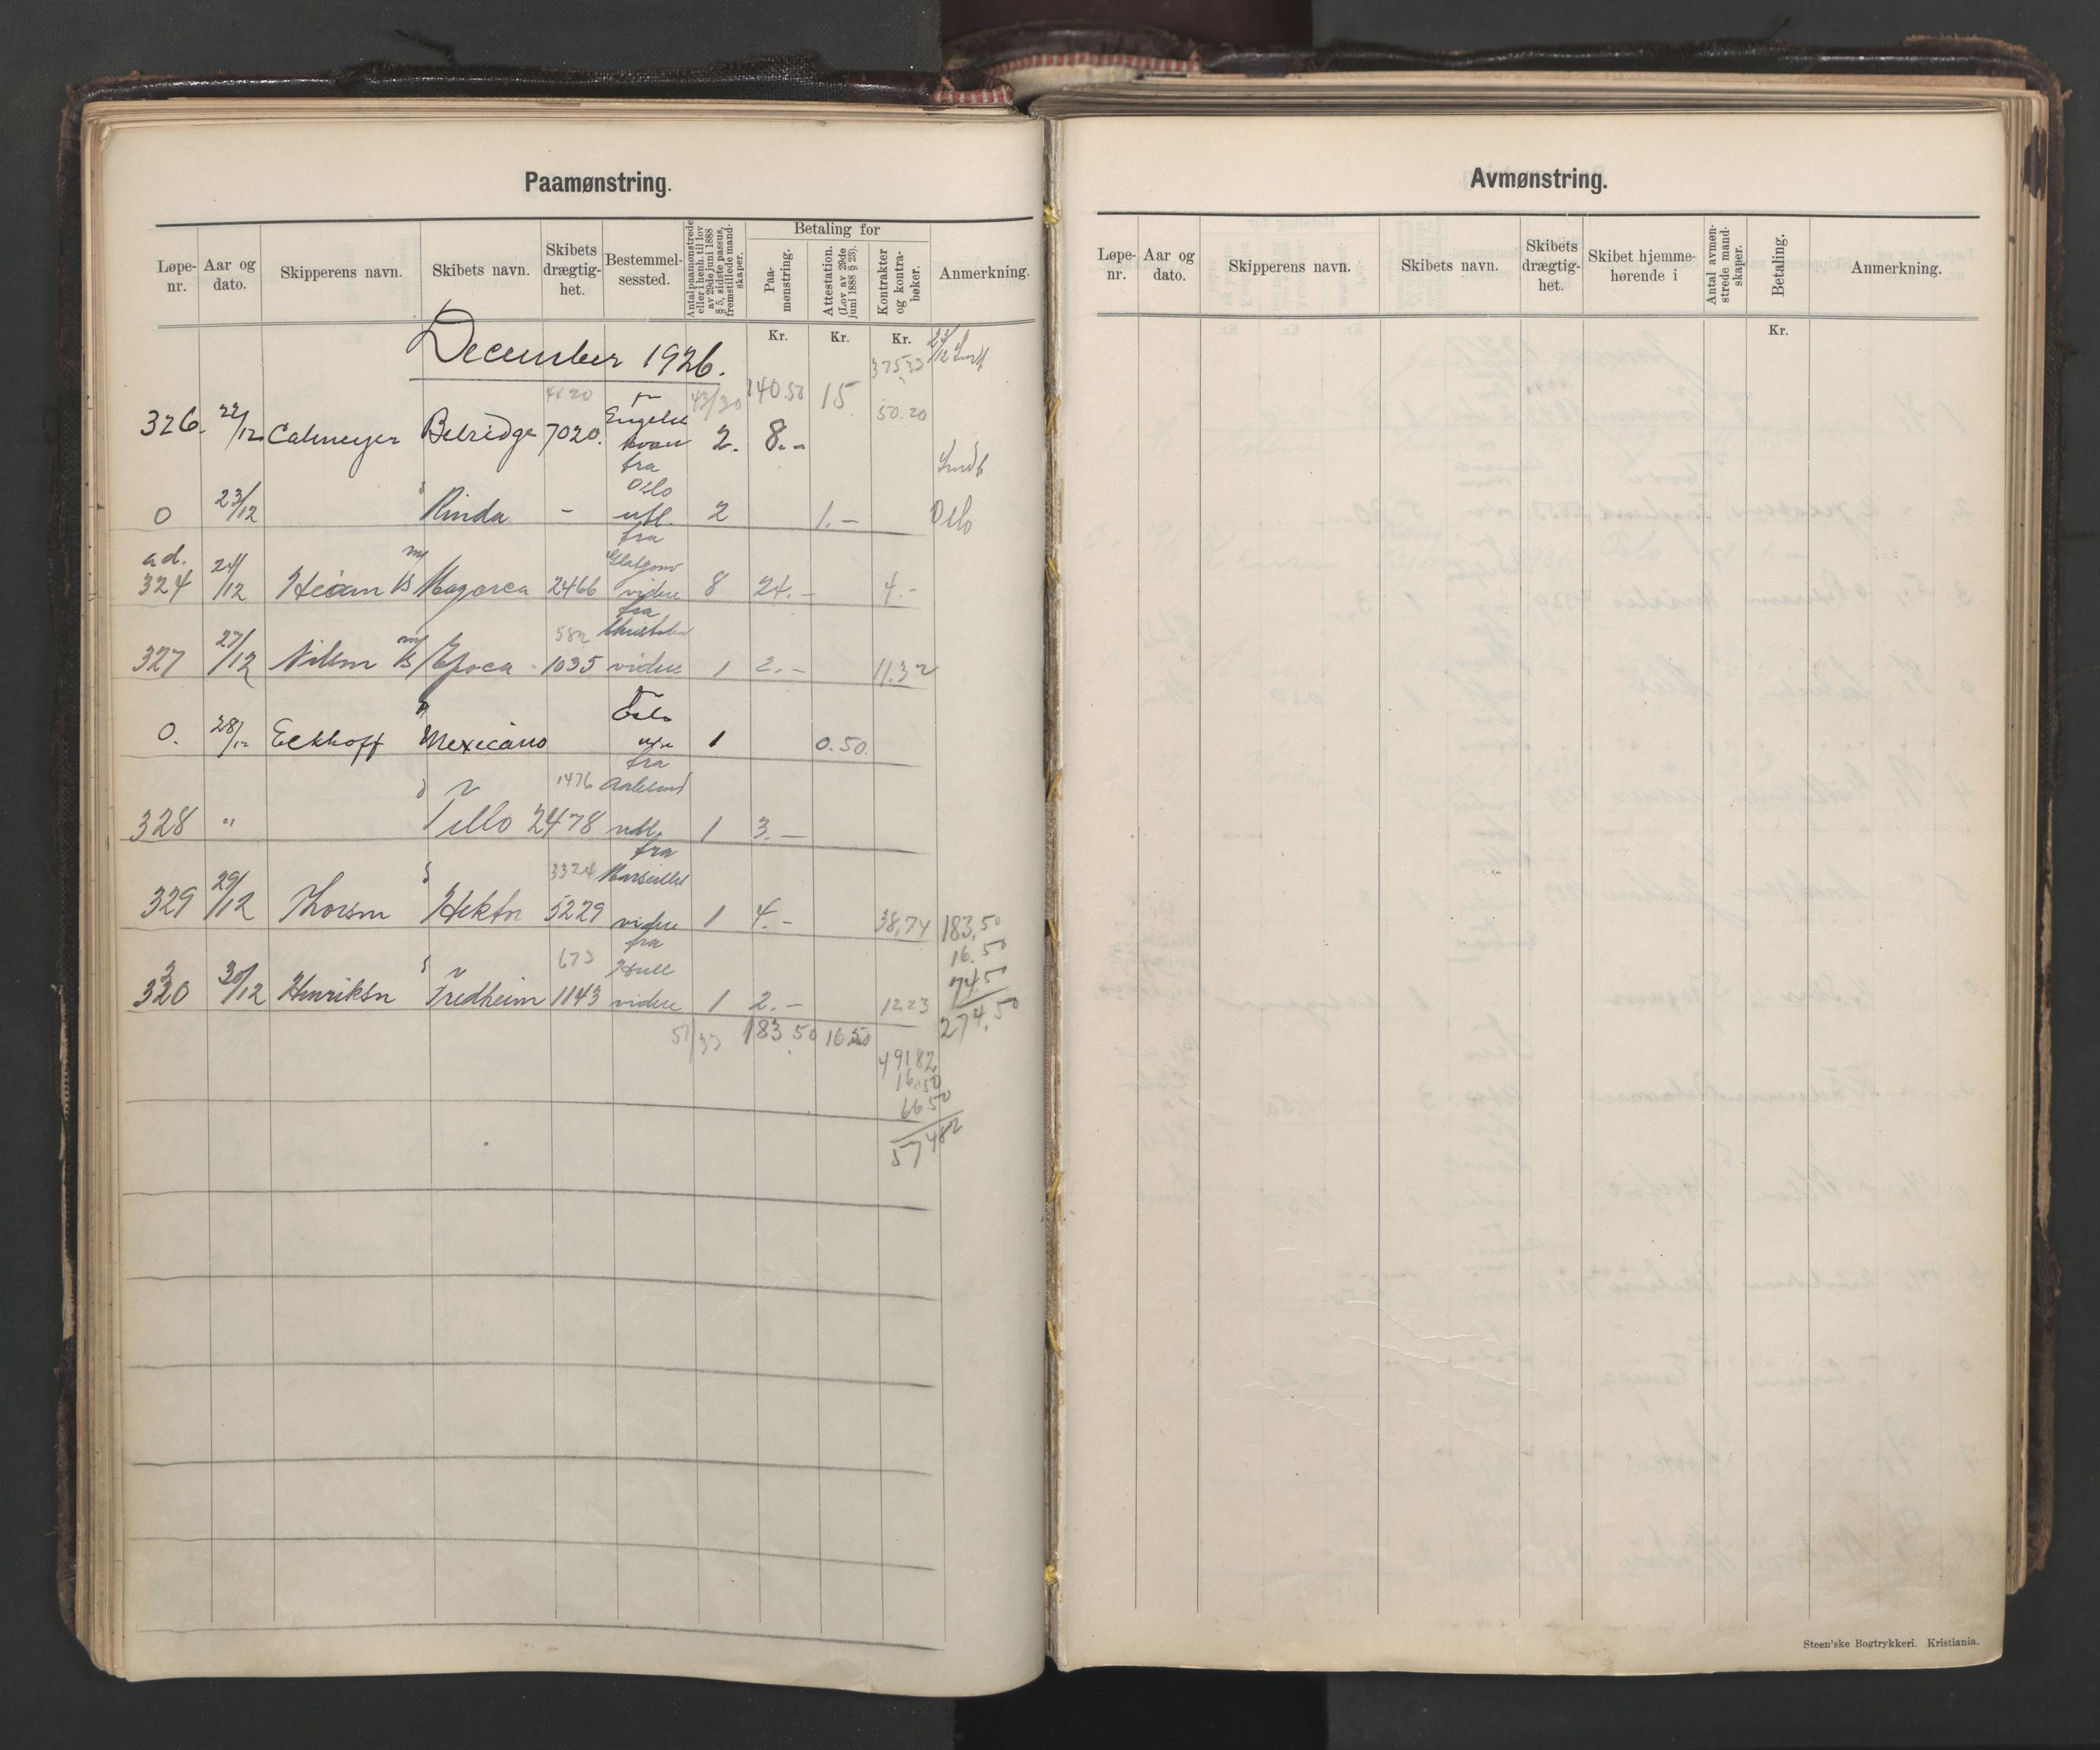 Paamønstring.
Løpe-nr. Aar og dato. Skipperens navn. Skibets navn. Skibets drægtig-het. Bestemmel-sessted. Antal paamønstrede eller i henh. til lov av 29de juni 1888 § 5, sidste passus, fremstillede mand-skaper. Betaling for Paa-mønstring. Attestation. (Lov av 29de juni 1888 § 23). Kontrakter og kontra-bøker. Anmerkning.
Kr. Kr. Kr.
December 1926.
4220 43/30 140.50 15. 50.20
326. 22/12 Calmeyer Belridge 7020. Engelsk havn 2. 8.-
fra Oslo
0 23/12 Rinda - utl. 2 1.- Oslo
fra Glasgow
ad. 324 24/12 Heian Mayorca 2466 videre 8 24.- 4.-
fra
582
327 27/12 Nilsen Epoca 1035 videre 1 2.- 11.32
Oslo
0. 28/12 Eckhoff Mexicano 1 0.50
fra
1476 Aalesund
328 " Tello 2478 utl. 1 3.-
fra
3324 Marseilles
329 29/12 Thorsen Hektor 5229 videre 1 4.- 38,74 183,50
fra 16.50
673 Hull 74.5
320 30/12 Henriksen Fredheim 1143 videre 1 2.- 12.23 274.50
51/33 183.50 16.50
491.82
16.50
66.50
574.82
Avmønstring.
Løpe-nr. Aar og dato. Skipperens navn. Skibets navn. Skibets drægtig-het. Skibet hjemme-hørende i Antal avmøn-strede mand-skaper. Betaling. Anmerkning.
Kr.
Steen'ske Bogtrykkeri. Kristiania.